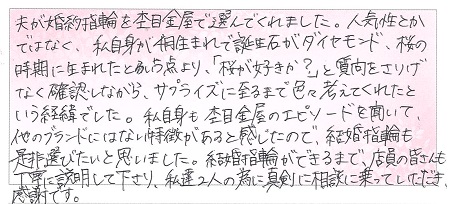 夫が婚約指輪を杢目金屋で選んでくれました。人気性とか
ではなく、私自身が4月生まれで誕生石がダイヤモンド、桜の
時期に生まれたという点より、「桜が好きか?」と質向をさりげ
なく確認しながら、サプライズに至るまで色々考えてくれたと
いう経緯でした。私自身も杢目金屋のエピソードを聞いて、
他のブランドにはない特徴があると感じたので、結婚指輪も
是非選びたいと思いました。結婚指輪ができるまで、店員の皆さんも
丁寧に説明して下さり、私達2人の為に真剣に相談に乗っていただき、
感謝です。